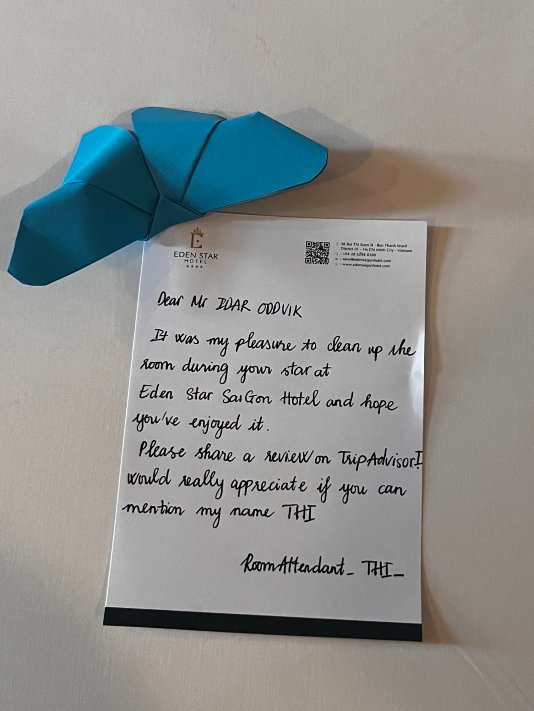 EDEN STAR
HOTEL
38 Bui Thi Xuan St - Ben Thanh Ward
District 01 - Ho Chi Minh City - Vietnam
+84 28 6288 8388
www.edensaigonhotel.com
Dear Mr IDAR ODDVIK
It was my pleasure to clean up the
room during your star at
Eden Star SaiGon Hotel and hope
you've enjoyed it.
Please share a review on TripAdvisor.I
would really appreciate if you can
mention my name THI
Room Attendant_ THI_